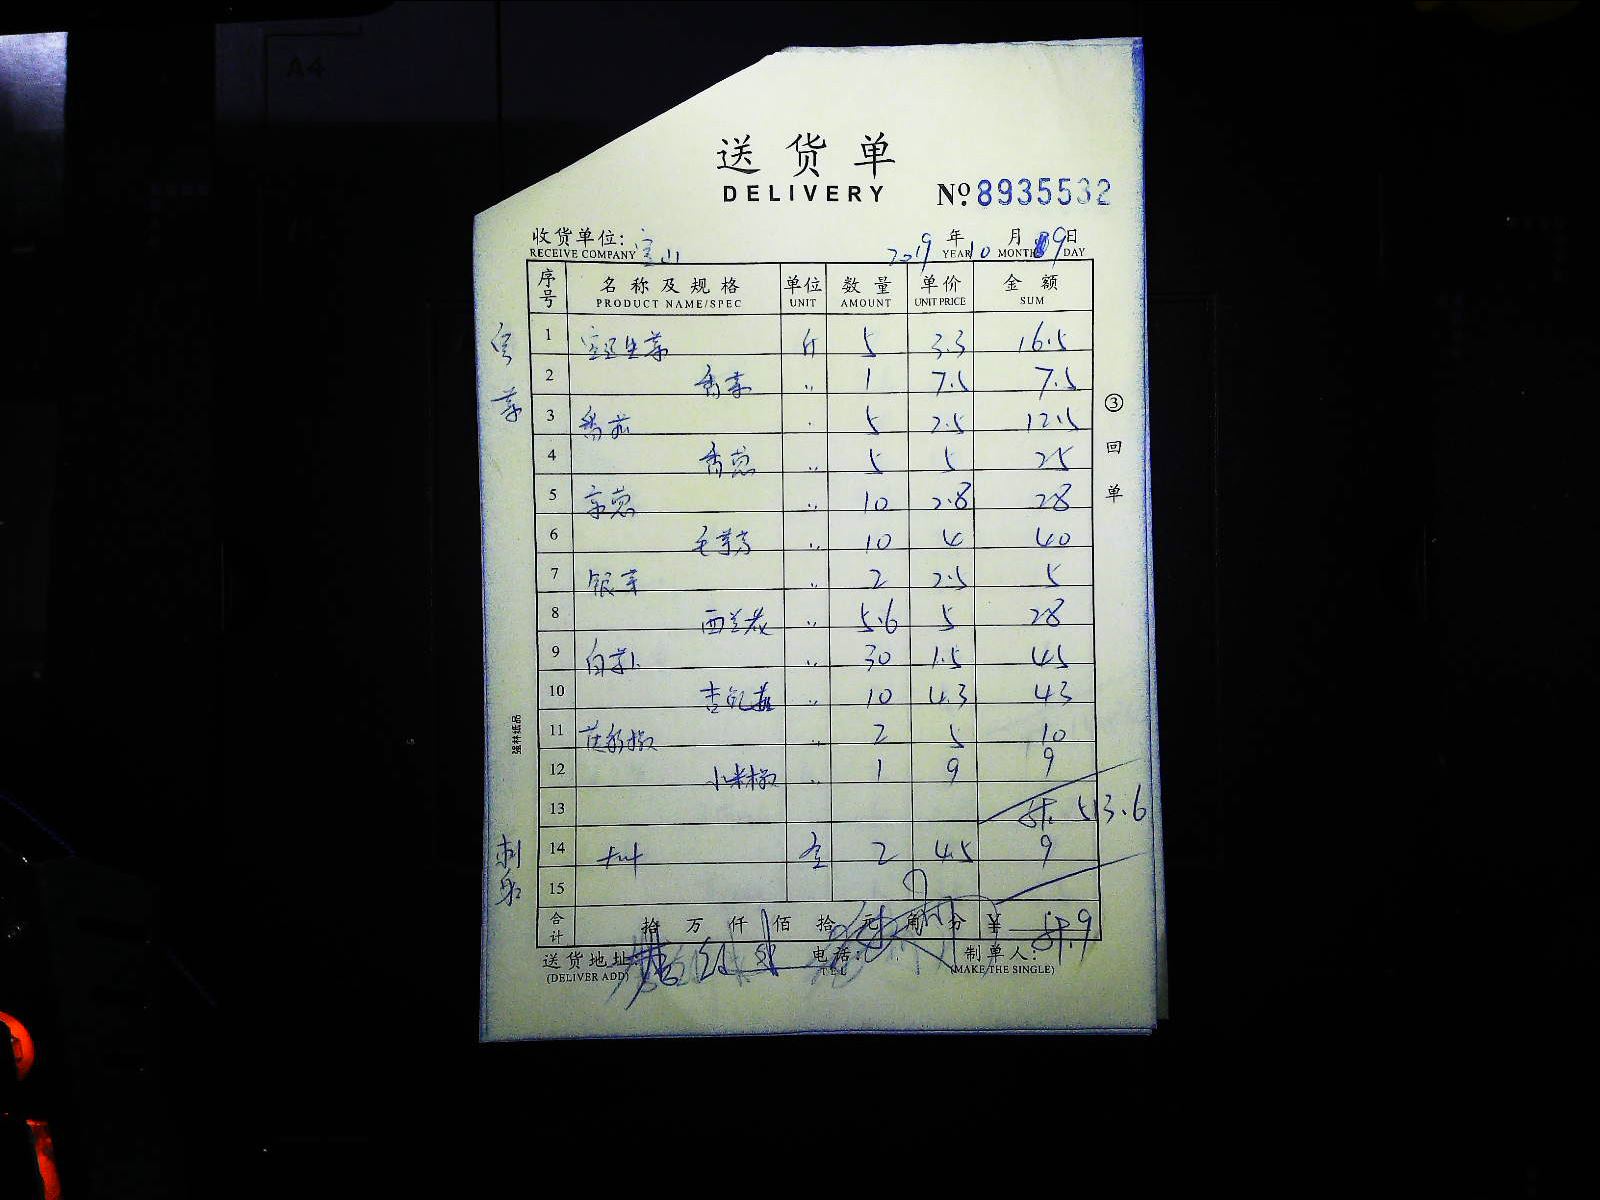 A4
送货单
DELIVERY
No: 8935532
收货单位: 宝山 2019 年 10 月 09 日
RECEIVE COMPANY YEAR MONTH DAY
序号 名称及规格 单位 数量 单价 金额
PRODUCT NAME/SPEC UNIT AMOUNT UNIT PRICE SUM
1 生菜 斤 5 3.3 16.5
2 香菜 〃 1 7.5 7.5
3 香菇 5 2.5 12.5
4 香葱 〃 5 5 25
5 京葱 〃 10 2.8 28
6 毛芋艿 〃 10 4 40
7 银芽 〃 2 2.5 5
8 西兰花 〃 5.6 5 28
9 白萝卜 〃 30 1.5 45
10 杏鲍菇 〃 10 4.3 43
11 〃 2 5 10
12 小米椒 〃 1 9 9
13 513.6
14 2 4.5 9
15
合计 拾 万 仟 佰 拾 元 角 分 ¥ 9
送货地址: 电话: 制单人:
(DELIVER ADD) TEL (MAKE THE SINGLE)
③回单
强林纸品
刺身